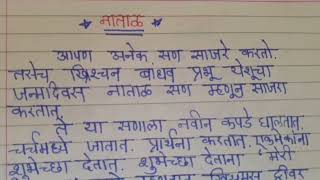 * नाताळ *
आपण अनेक सण साजरे करतो.
तसेच ख्रिश्चन बांधव प्रभू येशूचा
जन्मदिवस नाताळ सण म्हणून साजरा
करतात.
ते या सणाला नवीन कपडे घालतात.
चर्चमध्ये जातात. प्रार्थना करतात. एकमेकांना
शुभेच्छा देतात. शुभेच्छा देताना "मेरी